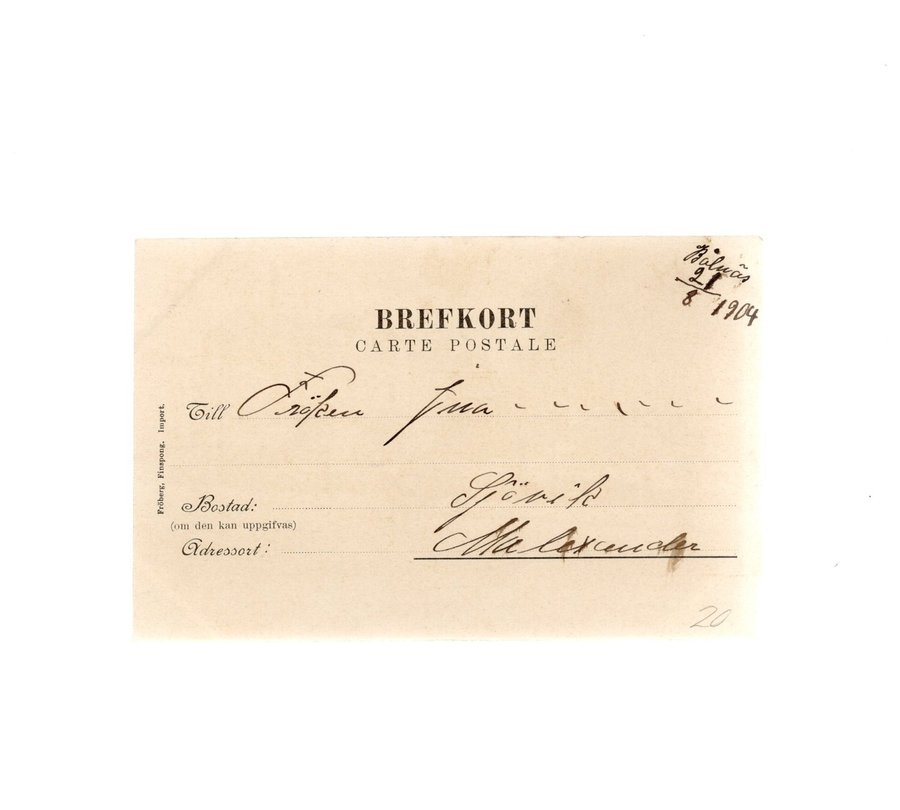 Bålnäs
21
8 1904
BREFKORT
CARTE POSTALE
Till Fröken Ina
Sjövik
Bostad:
(om den kan uppgifvas)
Adressort: Malexander
Fröberg, Finspong. Import.
20